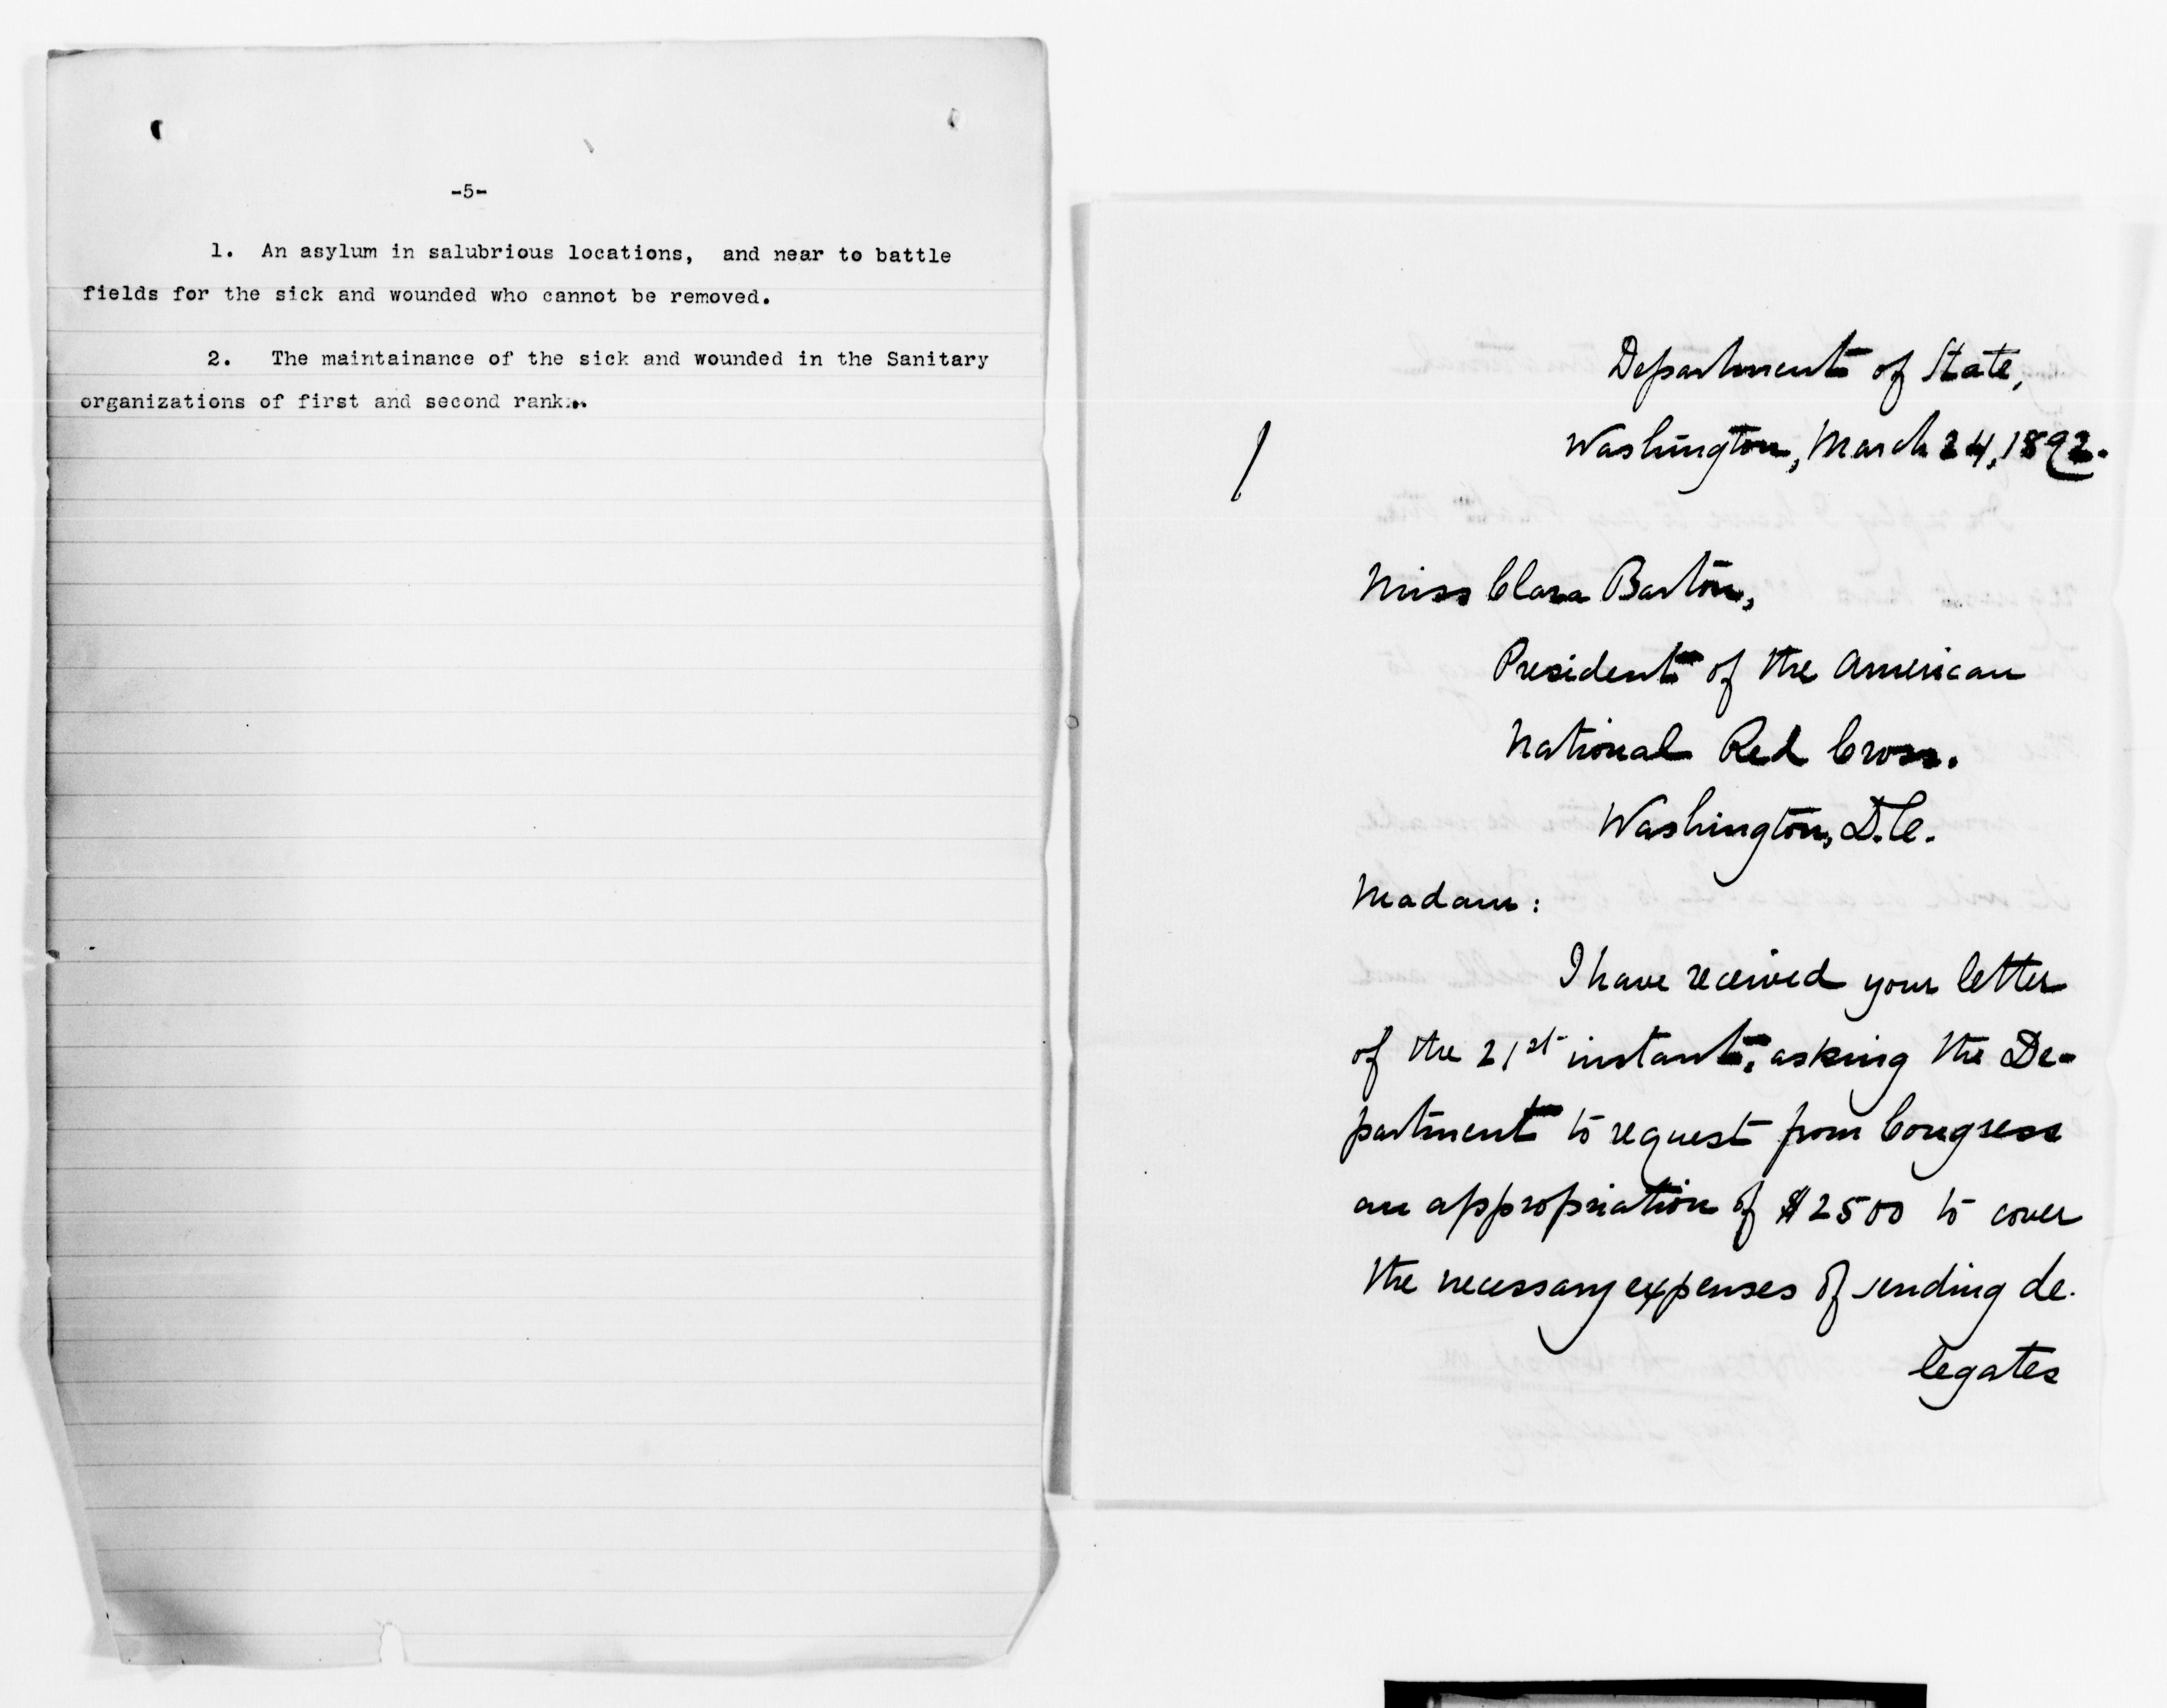 -5-
1. An asylum in salubrious locations, and near to battle
fields for the sick and wounded who cannot be removed.
2. The maintainance of the sick and wounded in the Sanitary
organizations of first and second rank...
Department of State,
Washington, March 24, 1892.
Miss Clara Barton,
President of the American
National Red Cross.
Washington, D.C.
Madam:
I have received your letter
of the 21st instant, asking the De-
partment to request from Congress
an appropriation of $2500 to cover
the necessary expenses of sending de-
legates